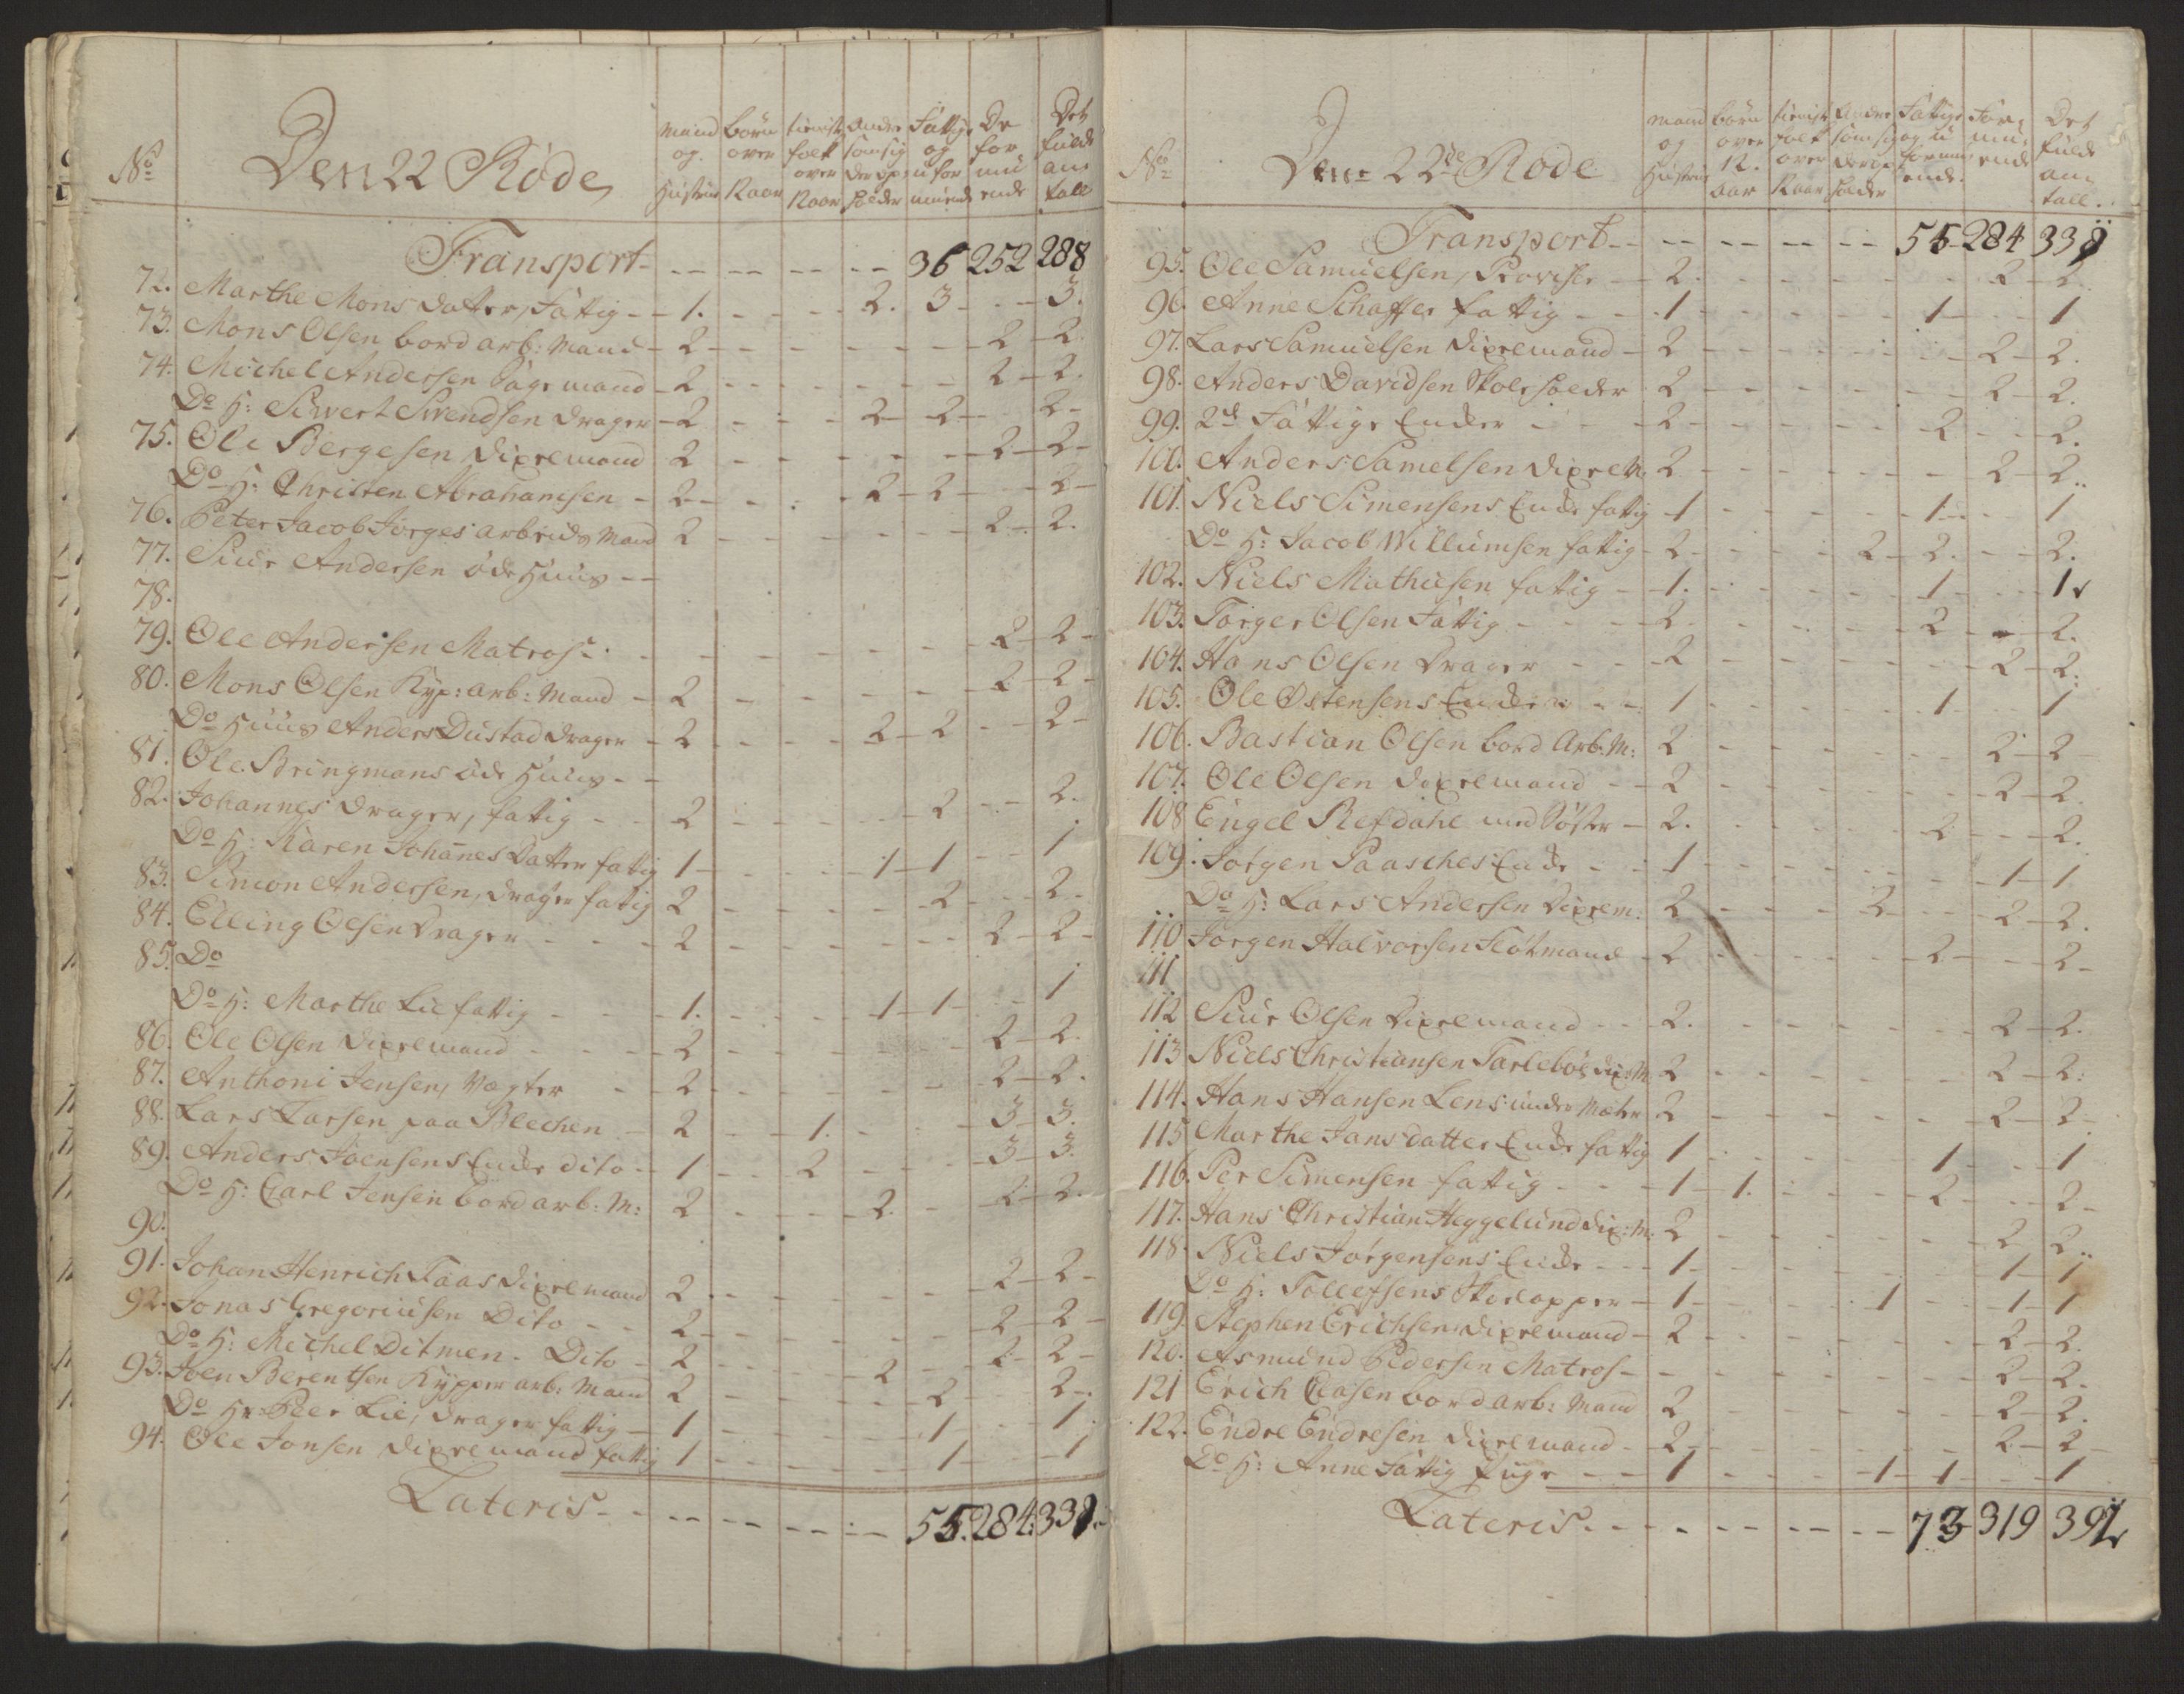 No Den 22 Rode mand og Hustrue börn over 12 aar tienist folk over 12 aar Andre som sig der op holder Fattige og ufor muende De for mu ende Det fulde an tall
Transport - - - - - 36 252 288
72. Marthe Mons datter, Fattig - 1. - - 2. 3 - - 3.
73. Mons Olsen bord arb: Mand - 2 - - - - 2 - 2.
74. Michel Andersen Sagemand - 2 - - - - 2 - 2.
Do H: Siwert Swendsen drager - 2 - - 2 - 2 - - 2 -
75. Ole Bergesen Dixelmand 2 - - - - 2 - 2 -
Do H: Christen Abrahamsen - 2 - - 2 - 2 - - 2 -
76. Peter Jacob Jörges arbeids Mand 2 - - - - 2 - 2.
77. Siur Andersen öde Huus - -
78.
79. Ole Andersen Matros - - - - - 2 - 2 -
80. Mons Olsen Kyp: arb: Mand - 2 - - - - 2 - 2 -
Do Huus Anders Dustad drager - 2 - - 2 - 2 - - 2 -
81. Ole Bringmans öde Huus - -
82. Johannes drager, fattig - - 2 - - - 2 - - 2.
Do H: Karen Johannes datter fattig 1 - - - 1 - 1 - - 1
83. Simon Andersen, drager fattig 2 - - - 2 - - 2 -
84. Elling Olsen drager - - - 2 - - - - 2 - 2 -
85. Do
Do H: Marthe Lie fattig - - - 1. - - - 1 - 1 - - 1
86. Ole Olsen Dixelmand - - - 2 - - - - 2 - 2.
87. Anthoni Jensen, Vægter - 2 - - - - 2 - 2.
88. Lars Larsen paa Blechen - 2 - - 1. - - 3 - 3.
89. Anders Joensens Enke dito - 1 - - 2 - - 3 - 3.
Do H: Carl Jensen bord arb: M: 2 - - - 2. - 2 - 2.
90.
91. Johan Henrich Faas Dixelmand 2 - - - - 2 - 2 -
92. Jonas Gregoriusen Dito - - 2 - - - - 2 - 2 -
Do H: Michel Ditmen - Dito - 2 - - - 2 - - 2 - 2 -
93. Joen Berentsen Kypper arb: Mand 2 - - - 2 - - 2 -
Do H: Peer Lie, drager fattig - 1 - - - - 1 - - 1.
94. Ole Jonsen Dixelmand fattig 1 - - - - 1 - - 1
Lateris - - - - - - - 55. 284. 339.
No Den 22de Rode mand og Hustrue börn over 12. aar tienist folk over 12 aar Andre som sig der op holder Fattige og u formu ende. For mu ende Det fulde an tall.
Transport - - - - - - 55 - 284 339
95. Ole Samuelsen, Proviser - 2. - - - - 2 - 2.
96. Anne Schaffer fattig - - 1 - - - - 1 - - 1
97. Lars Samuelsen Dixelmand - 2 - - - - 2 - 2.
98. Anders Davidsen Skoleholder 2 - - - - 2 - 2.
99. 2de Fattige Enker - - 2 - - - - 2 - - 2.
100. Anders Samelsen Dixel M: 2 - - - - 2 - 2.
101. Niels Simensens Enke fattig - 1 - - - - 1 - - 1
Do H: Jacob Willumsen fattig - 2 - - - 2 - 2. - - 2.
102. Niels Mathiesen fattig - 1. - - - - 1 - - 1
103. Törger Olsen Fattig - - - 2 - - - - 2 - - 2.
104. Hans Olsen drager - - 2 - - - - 2 - 2.
105. Ole Östensens Enke - - 1 - - - - 1 - - 1
106. Bastian Olsen bord Arb: M: 2 - - - - 2 - 2
107. Ole Olsen dixelmand - - 2 - - - - 2 - 2.
108 Engel Refdahl med Söster - 2. - - - - 2 - - 2.
109. Jörgen Paasches Enke - - 1 - - - - 1 - 1
Do H: Lars Andersen Dixelm: 2 - - - 2 - - 2 - 2.
110 Jörgen Halvorsen Flötmand - 2 - - - - 2 - - 2 -
111
112 Siur Olsen Dixelmand - - - 2. - - - - 2 - 2.
113 Niels Christiansen Tarleböe dix: M 2 - - - - 2 - 2.
114. Hans Hansen Lens under Mæler 2 - - - - 2 - 2 -
115 Marthe Jans datter Enke fattig 1 - - - - 1 - - 1
116. Per Simensen fattig - - - 1 - 1. - - - 2 - - 2 -
117. Hans Christian Heggelund dix: M: 2 - - - - 2 2.
118. Niels Jörgensens Enke - - - 1 - - - - 1 - 1
Do H: Tollefsens - 1 - - - - 1 - - 1 - 1
119. Stephen Erichsen dixelmand - 2 - - - - 2 - 2.
120. Asmund Pedersen Matros - - - - - - 2 - 2.
121 Erich Clasen bord arb: Mand 2 - - - - 2 - 2.
122. Endre Endresen dixelmand - 2 - - - - 2 - 2 -
Do H: Anne Fattig Pige - - 1 - - - - 1 - 1 - - 1
Lateris - - - - - - - 73 319 392